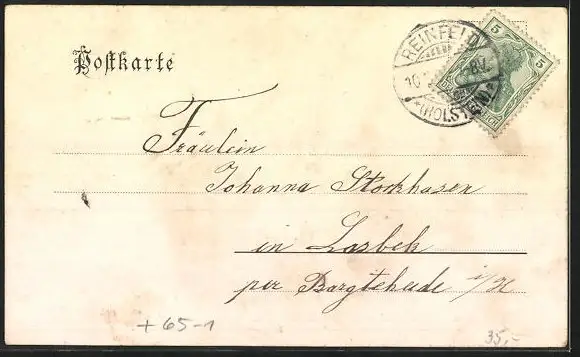 Postkarte
REINFELD
10
8V.
* (HOLSTEIN) *
5 5
Fräulein
Johanna Stockhusen
in Lasbek
per Bargteheide i/H
+65-1
35,-